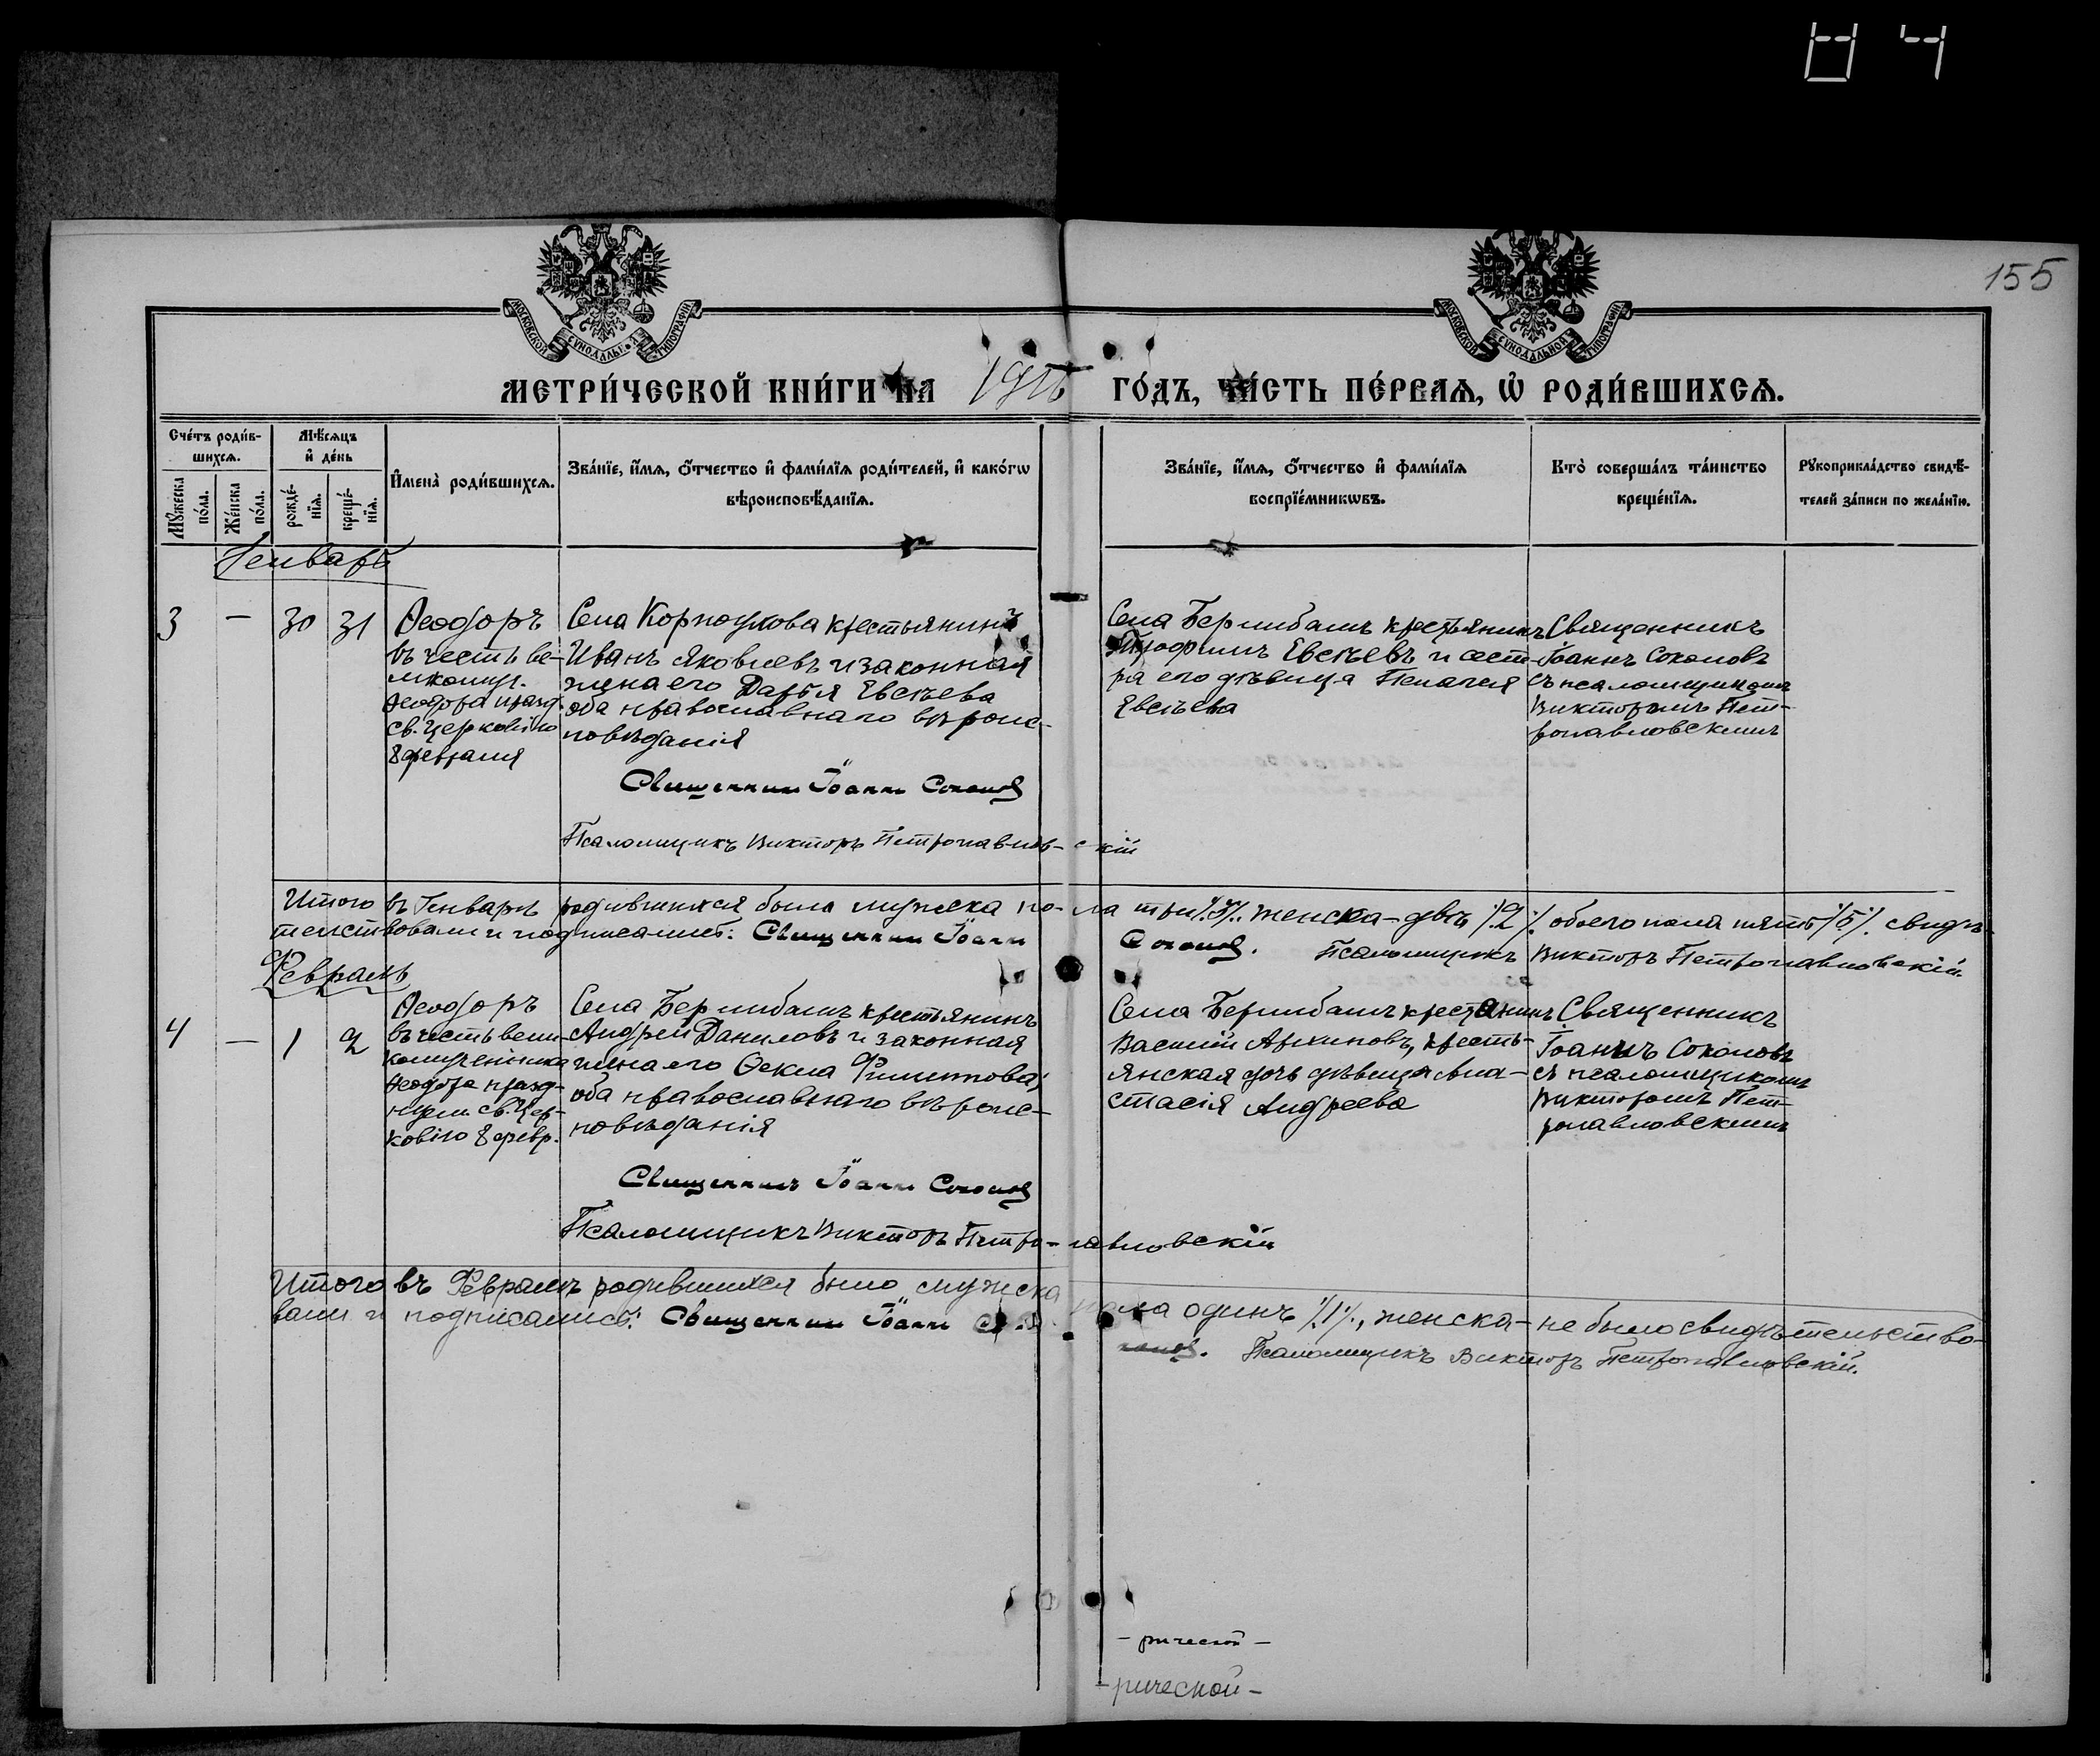 155
МОСКОВСКОЙ СУНОДАЛЬНОЙ ТИПОГРАФІИ
МОСКОВСКОЙ СУНОДАЛЬНОЙ ТИПОГРАФІИ
МЕТРИ́ЧЕСКОЙ КНИ́ГИ НА ГО́ДЪ, ЧА́СТЬ ПЕ́РВАѦ, Ѡ҆ РОДИ́ВШИХСѦ.
Сче́тъ роди́в-
шихсѧ.
Мꙋ́жеска
по́ла.
Же́нска
по́ла.
Мѣ́сѧцъ
и҆ де́нь
рожде́-
нїѧ.
креще́-
нїѧ.
И҆мена̀ роди́вшихсѧ.
Зва́нїе, и҆́мѧ, ѻ҆́тчество и҆ фами́лїѧ роди́телей, и҆ како́гѡ
вѣроисповѣ́данїѧ.
Зва́нїе, и҆́мѧ, ѻ҆́тчество и҆ фами́лїѧ
воспрїе́мникѡвъ.
Кто̀ соверша́лъ та́инство
креще́нїѧ.
Рꙋкоприкла́дство свидѣ́-
телей за́писи по жела́нїю.
Генварь
3 — 30 31
Ѳеодоръ
въ честь ве-
ликомуч.
Ѳеодора празд.
св. Церковію
8 февраля
Села Корноухова крестьянинъ
Иванъ Яковлевъ и законная
жена его Дарья Евсѣева
оба православнаго вѣроис-
повѣданія
Священникъ Іоаннъ Соколовъ
Псаломщикъ Викторъ Петропавлов-скій
Села Берлибашъ крестьянинъ
Трофимъ Евсѣевъ и сест-
ра его дѣвица Пелагея
Евсѣева
Священникъ
Іоаннъ Соколовъ
съ псаломщикомъ
Викторомъ Пет-
ропавловскимъ
Итого въ Генварѣ родившихся было мужеска по-ла три /3/. женска - двѣ /2/ обоего пола пять /5/. свидѣ-
тельствовали и подписались: Священникъ Іоаннъ Соколовъ. Псаломщикъ Викторъ Петропавловскій.
Февраль
4 — 1 2
Ѳеодоръ
въ честь вели-
комученика
Ѳеодора празд-
нуем. св. Цер-
ковію 8 февр.
Села Берлибашъ крестьянинъ
Андрей Даниловъ и законная
жена его Ѳекла Филиппова,
оба православнаго вѣроис-
повѣданія
Священникъ Іоаннъ Соколовъ
Псаломщикъ Викторъ Петро-павловскій
Села Берлибашъ крестянинъ
Василій Архиповъ, кресть-
янская дочь дѣвица Ана-
стасія Андреева
Священникъ
Іоаннъ Соколовъ
съ псаломщикомъ
Викторомъ Пет-
ропавловскимъ
Итого въ Февралѣ родившихся было мужеска пола одинъ /1/, женска - не было свидѣтельство-
вали и подписались: Священникъ Іоаннъ Соколовъ. Псаломщикъ Викторъ Петропавловскій.
- рической -
- рической -